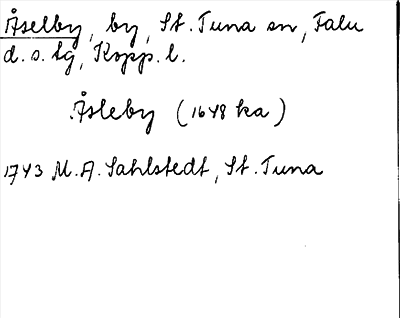 Åselby, by, St. Tuna sn, Falu
d. s. lg, Kopp. l.
Åsleby (1648 ka)
1743 M. A. Sahlstedt, St. Tuna